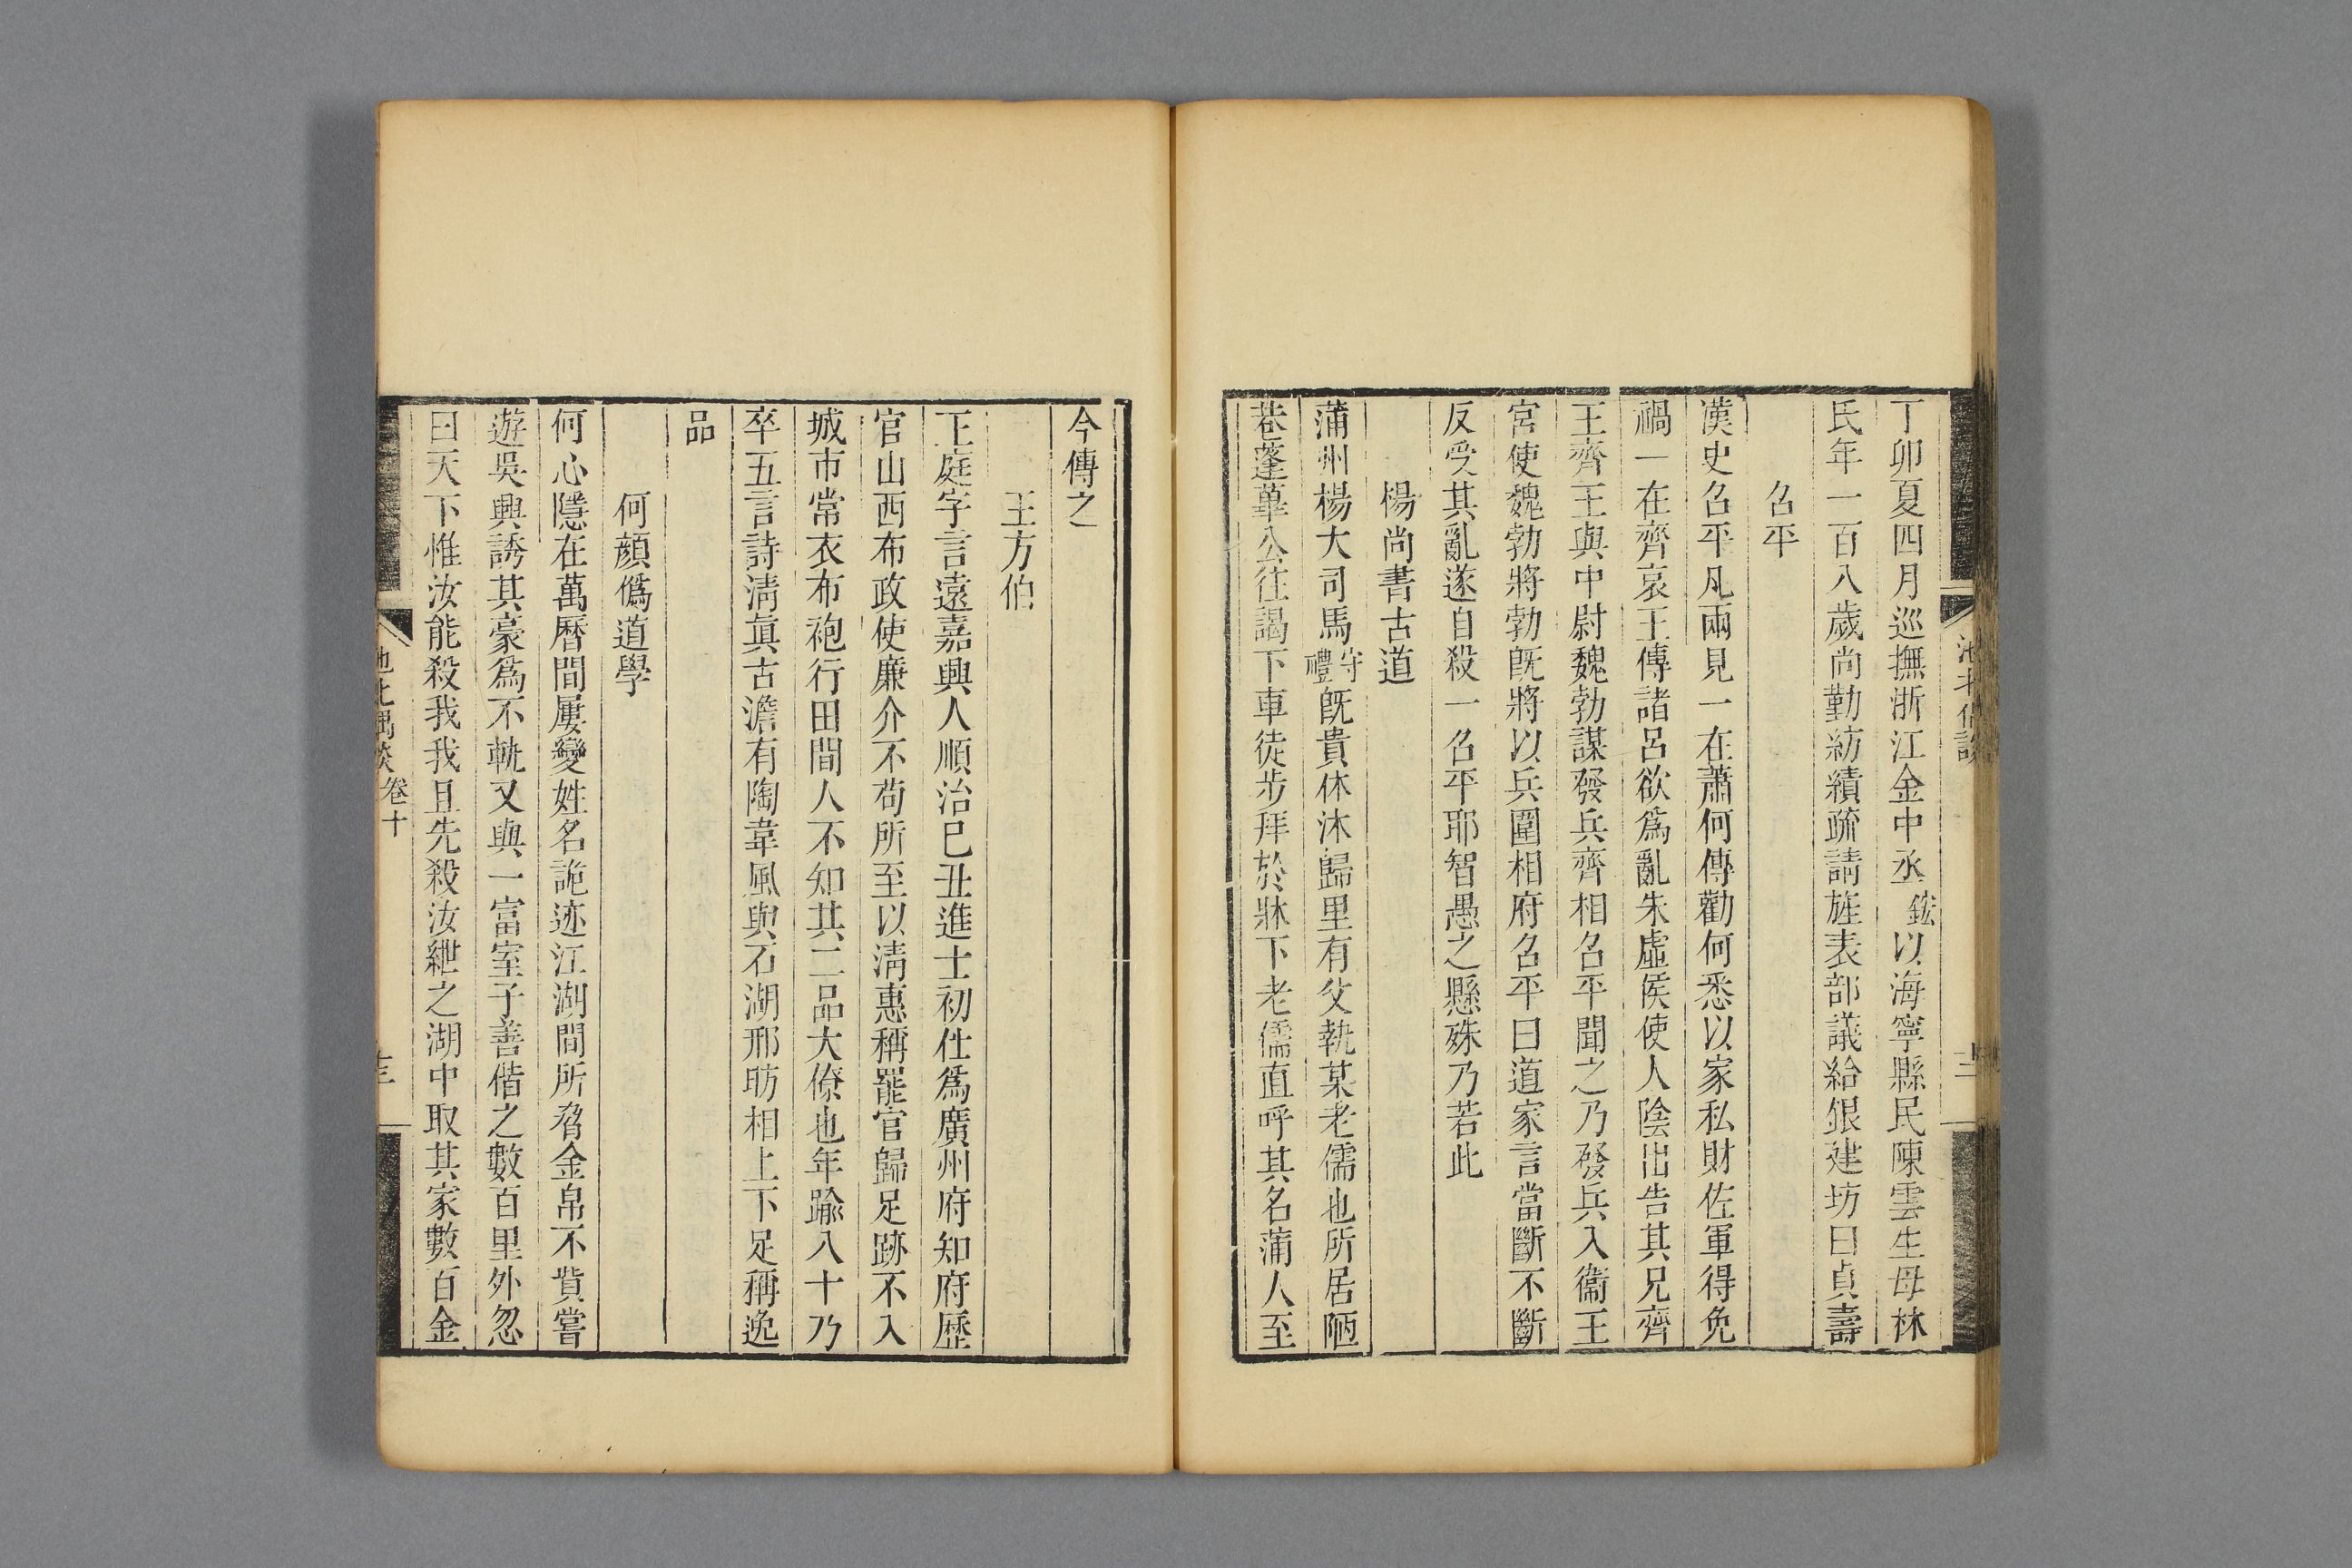 丁卯夏四月巡撫浙江金中丞鋐以海寧縣民陳雲生母林
氏年一百八歲尚勤紡績疏請旌表部議給銀建坊曰貞壽
召平
漢史召平凡兩見一在蕭何傳勸何悉以家私財佐軍得免
禍一在齊哀王傳諸呂欲爲亂朱虛侯使人陰出告其兄齊
王齊王與中尉魏勃謀發兵齊相召平聞之乃發兵入衞王
宮使魏勃將勃既將以兵圍相府召平曰道家言當斷不斷
反受其亂遂自殺一召平耶智愚之懸殊乃若此
楊尚書古道
蒲州楊大司馬守禮既貴休沐歸里有父執某老儒也所居陋
巷蓬蓽公往謁下車徒步拜於牀下老儒直呼其名蒲人至
今傳之
王方伯
王庭字言遠嘉興人順治巳丑進士初仕爲廣州府知府歷
官山西布政使廉介不苟所至以清惠稱罷官歸足跡不入
城市常衣布袍行田間人不知其二品大僚也年踰八十乃
卒五言詩清眞古澹有陶韋風與石湖邢昉相上下足稱逸
品
何顏僞道學
何心隱在萬曆間屢變姓名詭迹江湖間所脅金帛不貲嘗
遊吳興誘其豪爲不軌又與一富室子善偕之數百里外忽
曰天下惟汝能殺我我且先殺汝紲之湖中取其家數百金
池北偶談 卷十 十三